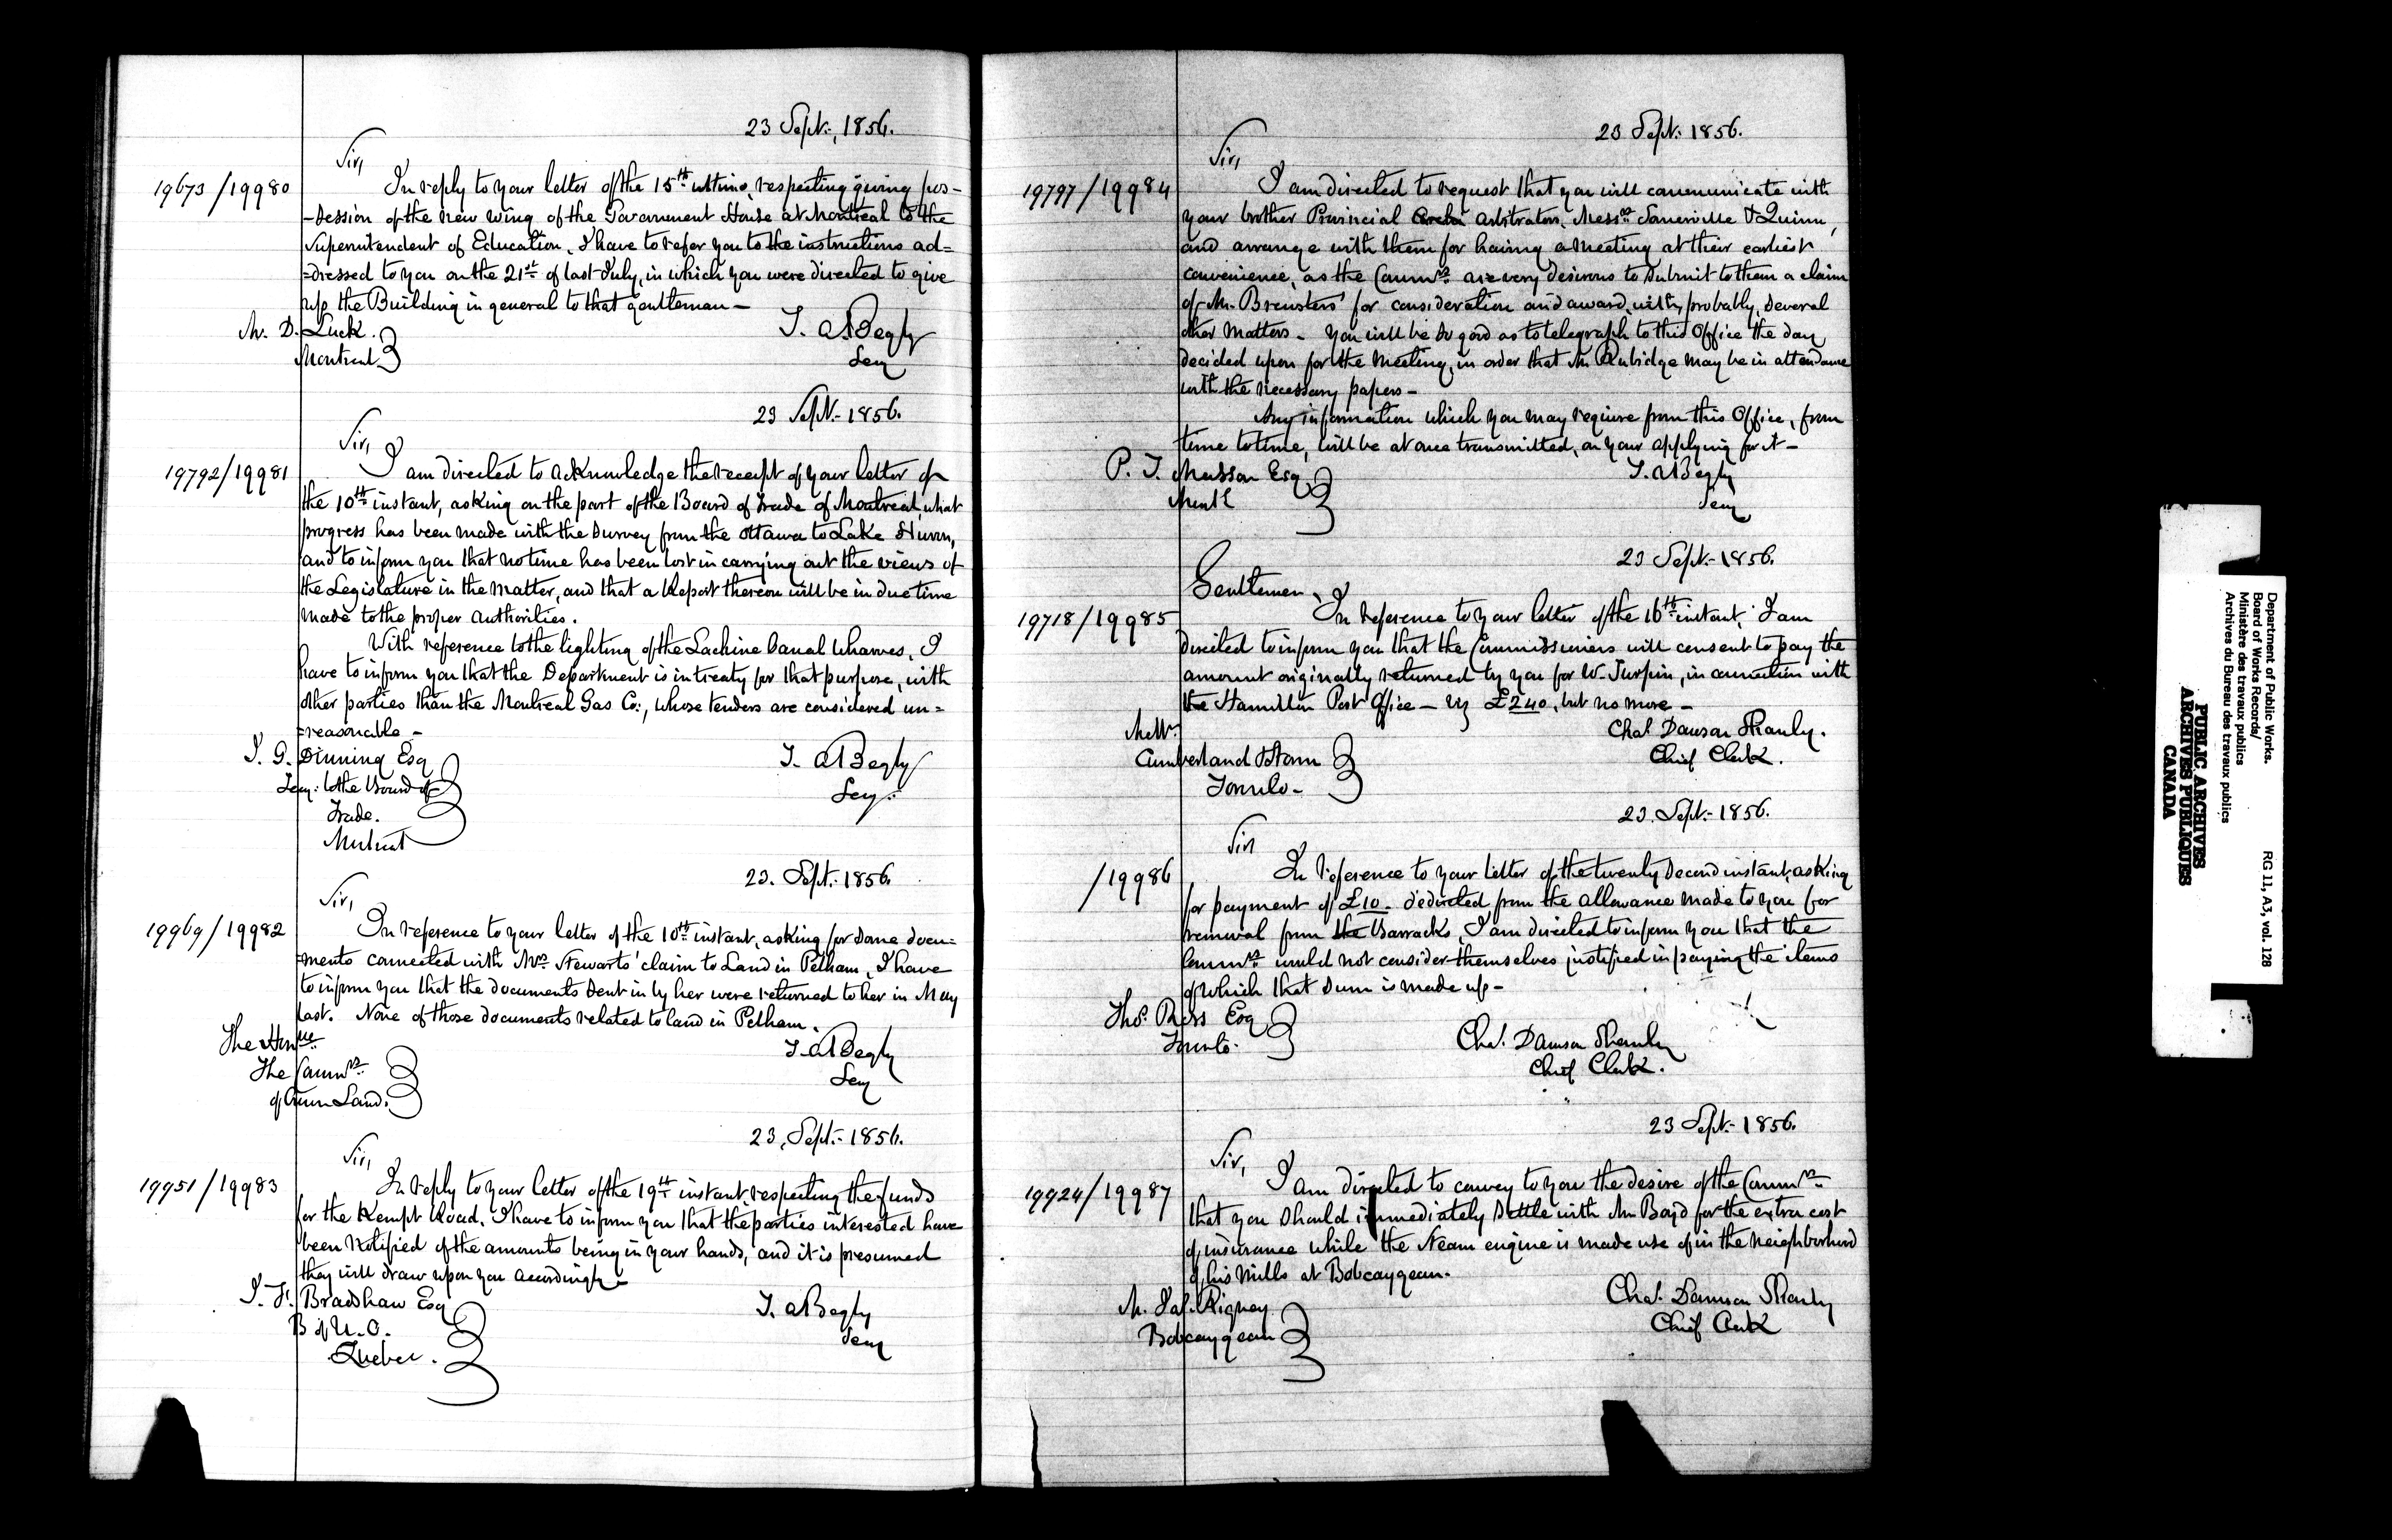 23 Sept:, 1856.
Sir,
19673/19980
In reply to your letter of the 15th ultimo, respecting giving pos-
-session of the new wing of the Government House at Montreal to the
Superintendent of Education, I have to refer you to the instructions ad=
=dressed to you on the 21st of last July, in which you were directed to give
up the Building in general to that gentleman —
Mr. D. Luck.
Montreal
T. A. Begly
Secy
23 Sept:- 1856.
Sir,
19792/19981
I am directed to acknowledge the receipt of your letter of
the 10th instant, asking on the part of the Board of Trade of Montreal, what
progress has been made with the survey from the Ottawa to Lake Huron,
and to inform you that no time has been lost in carrying out the views of
the Legislature in the matter, and that a Report thereon will be in due time
made to the proper authorities.
With reference to the lighting of the Lachine Canal Wharves, I
have to inform you that the Department is in treaty for that purpose, with
other parties than the Montreal Gas Co:, whose tenders are considered un=
=reasonable —
I. G. Dinning Esq
Secy: to the Board of
Trade.
Montreal
T. A. Begly
Secy:
23. Sept:- 1856.
Sir,
19969/19982
In reference to your letter of the 10th instant, asking for some docu=
=ments connected with Mrs Stewarts' claim to Land in Pelham, I have
to inform you that the documents sent in by her were returned to her in May
last. None of those documents related to land in Pelham.
The Honble
The Commrs
of Crown Land.
T. A. Begly
Secy
23, Sept:- 1856.
Sir,
19951/19983
In reply to your letter of the 19th instant respecting the funds
for the Kempt Road, I have to inform you that the parties interested have
been notified of the amounts being in your hands, and it is presumed
they will draw upon you accordingly —
J. F. Bradshaw Esq
B of U. C.
Quebec.
T. A. Begly
Secy
23 Sept: 1856.
Sir,
19797/19984
I am directed to request that you will communicate with
your brother Provincial Arbitrators, Messrs Somerville & Quinn,
and arrange with them for having a meeting at their earliest
convenience, as the Commrs are very desirous to submit to them a claim
of Mr. Brewsters' for consideration and award, with, probably, several
other matters — You will be so good as to telegraph to this Office the day
decided upon for the meeting, in order that Mr Rubidge may be in attendance
with the necessary papers —
Any information which you may require from this Office, from
time to time, will be at once transmitted, on your applying for it —
P. T. Masson Esq
Montl
T. A. Begly
Secy
23 Sept:- 1856.
Gentlemen,
19718/19985
In reference to your letter of the 16th instant, I am
directed to inform you that the Commissioners will consent to pay the
amount originally returned by you for W. Turpin, in connection with
the Hamilton Post Office — viz £240, but no more —
Messrs
Cumberland & Storm
Toronto —
Chas. Dawson Shanly.
Chief Clerk.
23. Sept:- 1856.
Sir
/19986
In reference to your letter of the twenty second instant, asking
for payment of £10. deducted from the allowance made to you for
removal from the Barracks, I am directed to inform you that the
Commrs would not consider themselves justified in paying the items
of which that sum is made up —
Thos. Esq
Toronto.
Chas. Dawson Shanly
Chief Clerk.
23 Sept:- 1856.
Sir,
19924/19987
I am directed to convey to you the desire of the Commrs
that you should immediately settle with Mr Boyd for the extra cost
of insurance while the steam engine is made use of in the neighborhood
of his Mills at Bobcaygean.
Mr. Jas. Rigney
Bobcaygean
Chas. Dawson Shanly
Chief Clerk
Department of Public Works.
Board of Works Records/
Ministère des travaux publics
Archives du Bureau des travaux publics
RG 11, A3, vol. 128
PUBLIC ARCHIVES
ARCHIVES PUBLIQUES
CANADA